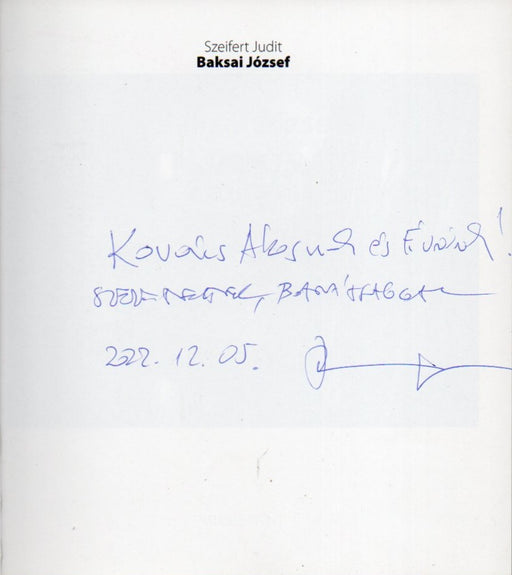 Szeifert Judit
Baksai József
Kovács Ákosnak és Évának!
SZERETETTEL, BARÁTSÁGGAL
2022. 12. 05.